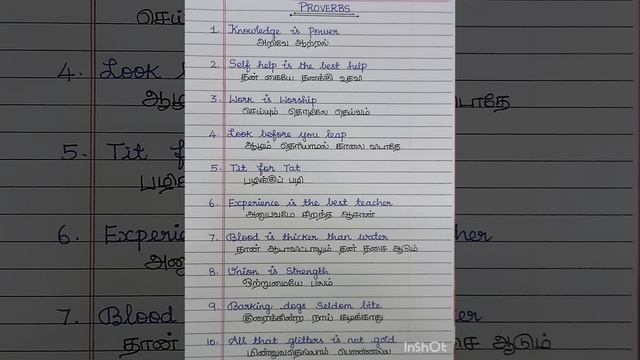 PROVERBS
1. Knowledge is power
அறிவே ஆற்றல்
2. Self help is the best help
தன் கையே தனக்கு உதவி
3. Work is Worship
செய்யும் தொழிலே தெய்வம்
4. Look before you leap
ஆழம் தெரியாமல் காலை விடாதே
5. Tit for Tat
பழிக்குப் பழி
6. Experience is the best teacher
அனுபவமே சிறந்த ஆசான்
7. Blood is thicker than water
தான் ஆடாவிட்டாலும் தன் தசை ஆடும்
8. Union is Strength
ஒற்றுமையே பலம்
9. Barking dogs Seldom bite
குரைக்கின்ற நாய் கடிக்காது
10. All that glitters is not gold
மின்னுவதெல்லாம் பொன்னல்ல
InShOt